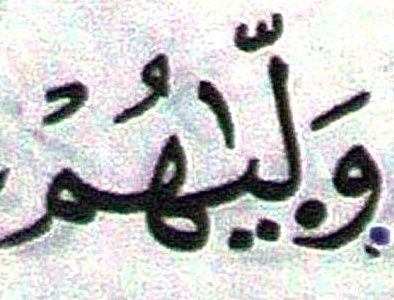 وَلّ۪يٰهُمْ